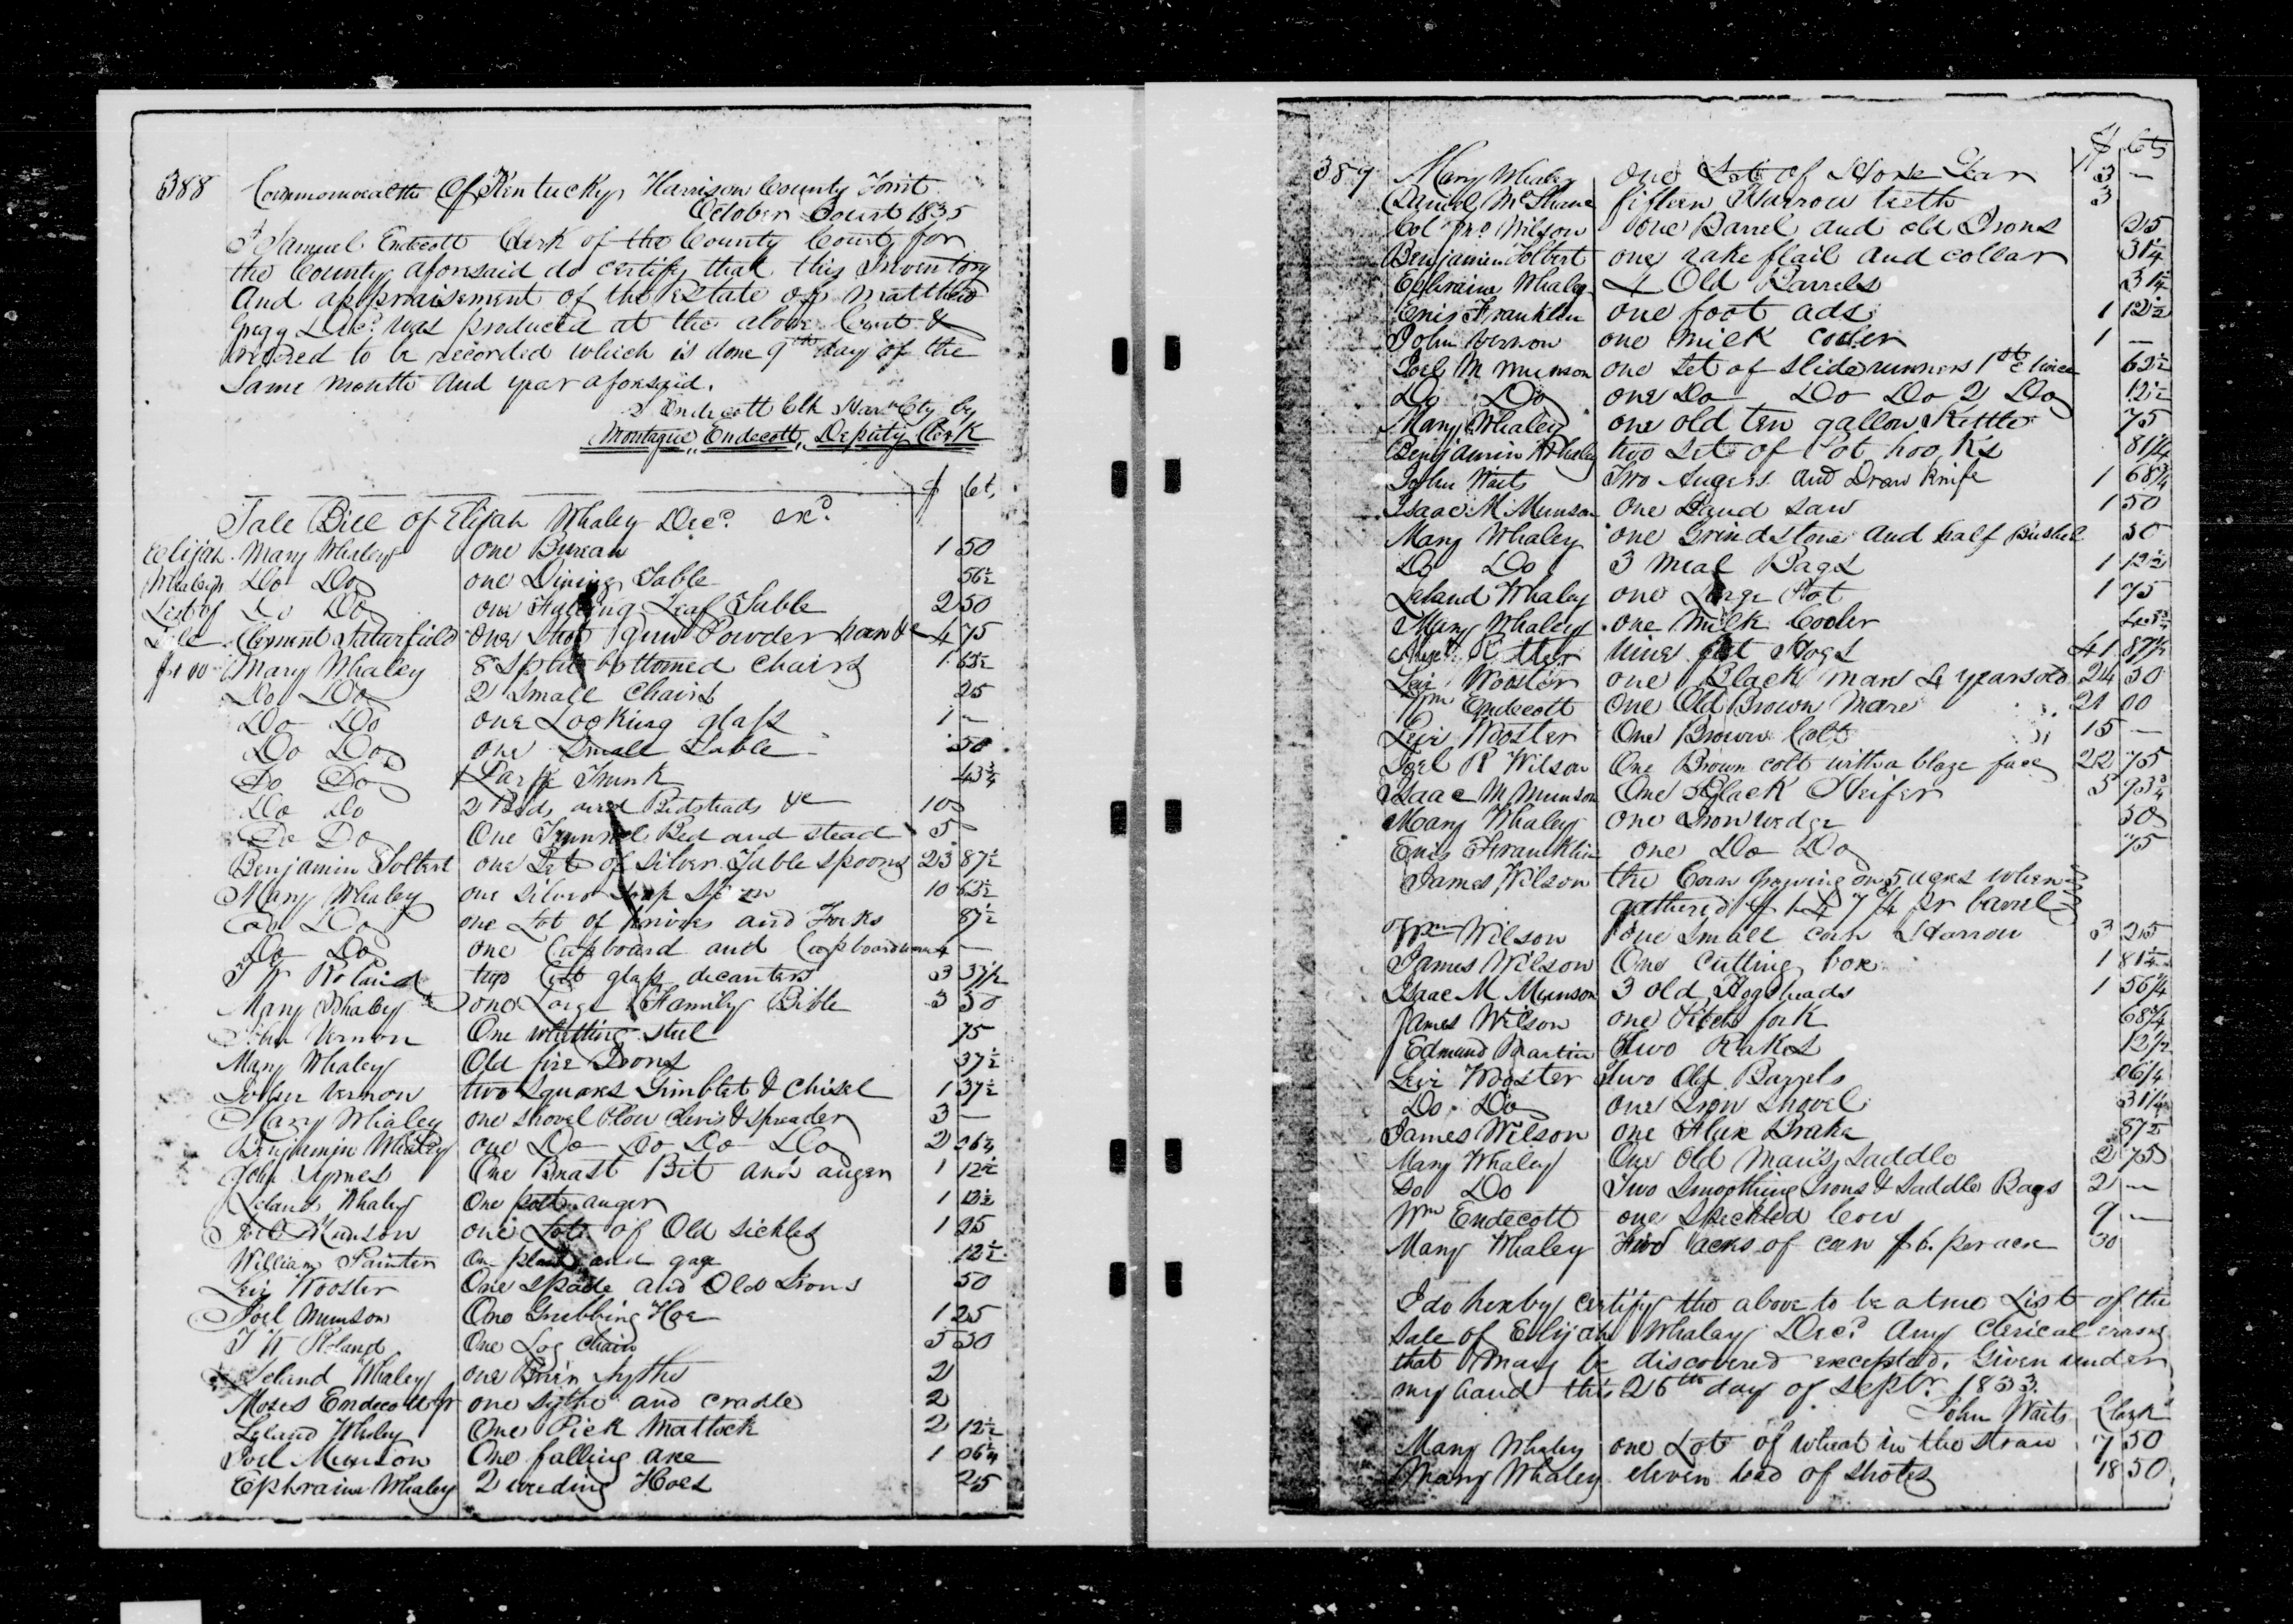 388
Commonwealth Of Kentucky, Harrison County
October Court 1835
I Samuel Endecott Clerk of the County Court for
the County aforesaid do certify that this Inventory
And appraisement of the Estate of Matthew
Gregg Decd. was produced at the above Court &
ordered to be recorded which is done 9th day of the
Same month and year aforesaid.
S Endecott Clk Harn Cty by
Montague Endecott, Deputy Clerk
$ Cts
Sale Bill of Elijah Whaley Decd.
Elijah Mary Whaley one Bureau 1 50
Whaleys Do Do one Dining Table 56½
List of Do Do one Falling Leaf Table 2 50
Sale Clement Saturfield one Shot Gun Powder horn &c 4 75
Mary Whaley 8 Split bottomed Chairs 1 62½
Do Do 2 Small Chairs 25
Do Do one Looking glass 1 —
Do Do one Small Table 50
Do Do 1 Large Trunk 43¾
Do Do 2 Beds and Bedsteads &c 10
Do Do One Trunnel Bed and stead 5
Benjamin Tolbert one Set of Silver Table Spoons 23 87½
Mary Whaley one silver Soup Spoon 10 62½
Do Do one Lot of Knives and Forks 87½
Do Do one Cupboard and Cupboard ware 4 —
T W Roland two Cut glass decanters 3 37½
Mary Whaley one Large Family Bible 3 50
John Vernon One whetting steel 75
Mary Whaley Old fire Irons 37½
John Vernon two Squares Gimblet & Chisel 1 37½
Mary Whaley one shovel Plow Clevis & Spreader 3 —
Benjamin Whaley one Do Do Do Do 2 06¼
John Aymes One Breast Bit and auger 1 12½
Leland Whaley One post auger 1 12½
Joel Munson one Lot of Old Sickles 1 25
William Painter One plane and gage 12½
Levi Wooster One spade and Old Irons 50
Joel Munson One Grubbing Hoe 1 25
T W Roland One Log Chain 5 50
Leland Whaley one Brier Sythe 2
Moses Endecott Jr one Sythe and Cradle 2
Leland Whaley One Pick Mattock 2 12½
Joel Munson One falling axe 1 06¼
Ephraim Whaley 2 weeding Hoes 25
389
$ Cts
Mary Whaley one Lot of Horse Gear 3 —
Daniel McShane fifteen Harrow teeth 3
Col Jno Wilson one Barrel and old Irons 25
Benjamin Tolbert one rake flail and collar 31¼
Ephraim Whaley 4 Old Barrels 31¼
Enis Franklin one foot ads 1 12½
John Vernon one Milk Cooler 1 —
Joel M Munson one Set of slide runners 1st Choice 62½
Do Do one Do Do Do 2 Do 12½
Mary Whaley one old ten gallon Kettle 75
Benjamin Whaley two Sets of Pot hooks 81¼
John Waits Two Augers and Draw knife 1 68¾
Isaac M Munson One Hand Saw 1 50
Mary Whaley one Grindstone and half Bushel 50
Do Do 3 Meal Bags 1 12½
Leland Whaley one Large Pot 1 75
Mary Whaley one Milk Cooler
Ritter nine fat Hogs 41 87½
Levi Wooster one Black mare 4 years old 24 50
Wm Endecott One Old Brown Mare 21 00
Levi Wooster One Brown Colt 15 —
Joel R Wilson One Brown colt with a blaze face 22 75
Isaac M Munson One Black Heifer 5 93¾
Mary Whaley one Iron wedge 50
Enis Franklin one Do Do 75
James Wilson the Corn growing on 5 acres when
gathered at $1.47¼ pr barrel
Wm Wilson one Small corn Harrow 3 25
James Wilson One Cutting box 1 81¼
Isaac M Munson 3 old Hogsheads 1 56¼
James Wilson one Pitch fork 68¾
Edmund Martin two Rakes 12½
Levi Wooster two Old Barrels 06¼
Do Do one Iron Shovel 31¼
James Wilson one Flax Brake 87½
Mary Whaley One Old Man's Saddle 2 75
Do Do Two Smoothing Irons & Saddle Bags 2 —
Wm Endecott one Speckled Cow 9 —
Mary Whaley five acres of corn $6. per acre 30
I do hereby certify the above to be a true List of the
Sale of Elijah Whaley Decd. Any Clerical errors
that may be discovered excepted. Given under
my hand this 26th day of Septr. 1833.
John Waits Clerk
Mary Whaley one Lot of wheat in the straw 7 50
Mary Whaley eleven head of shotes 18 50